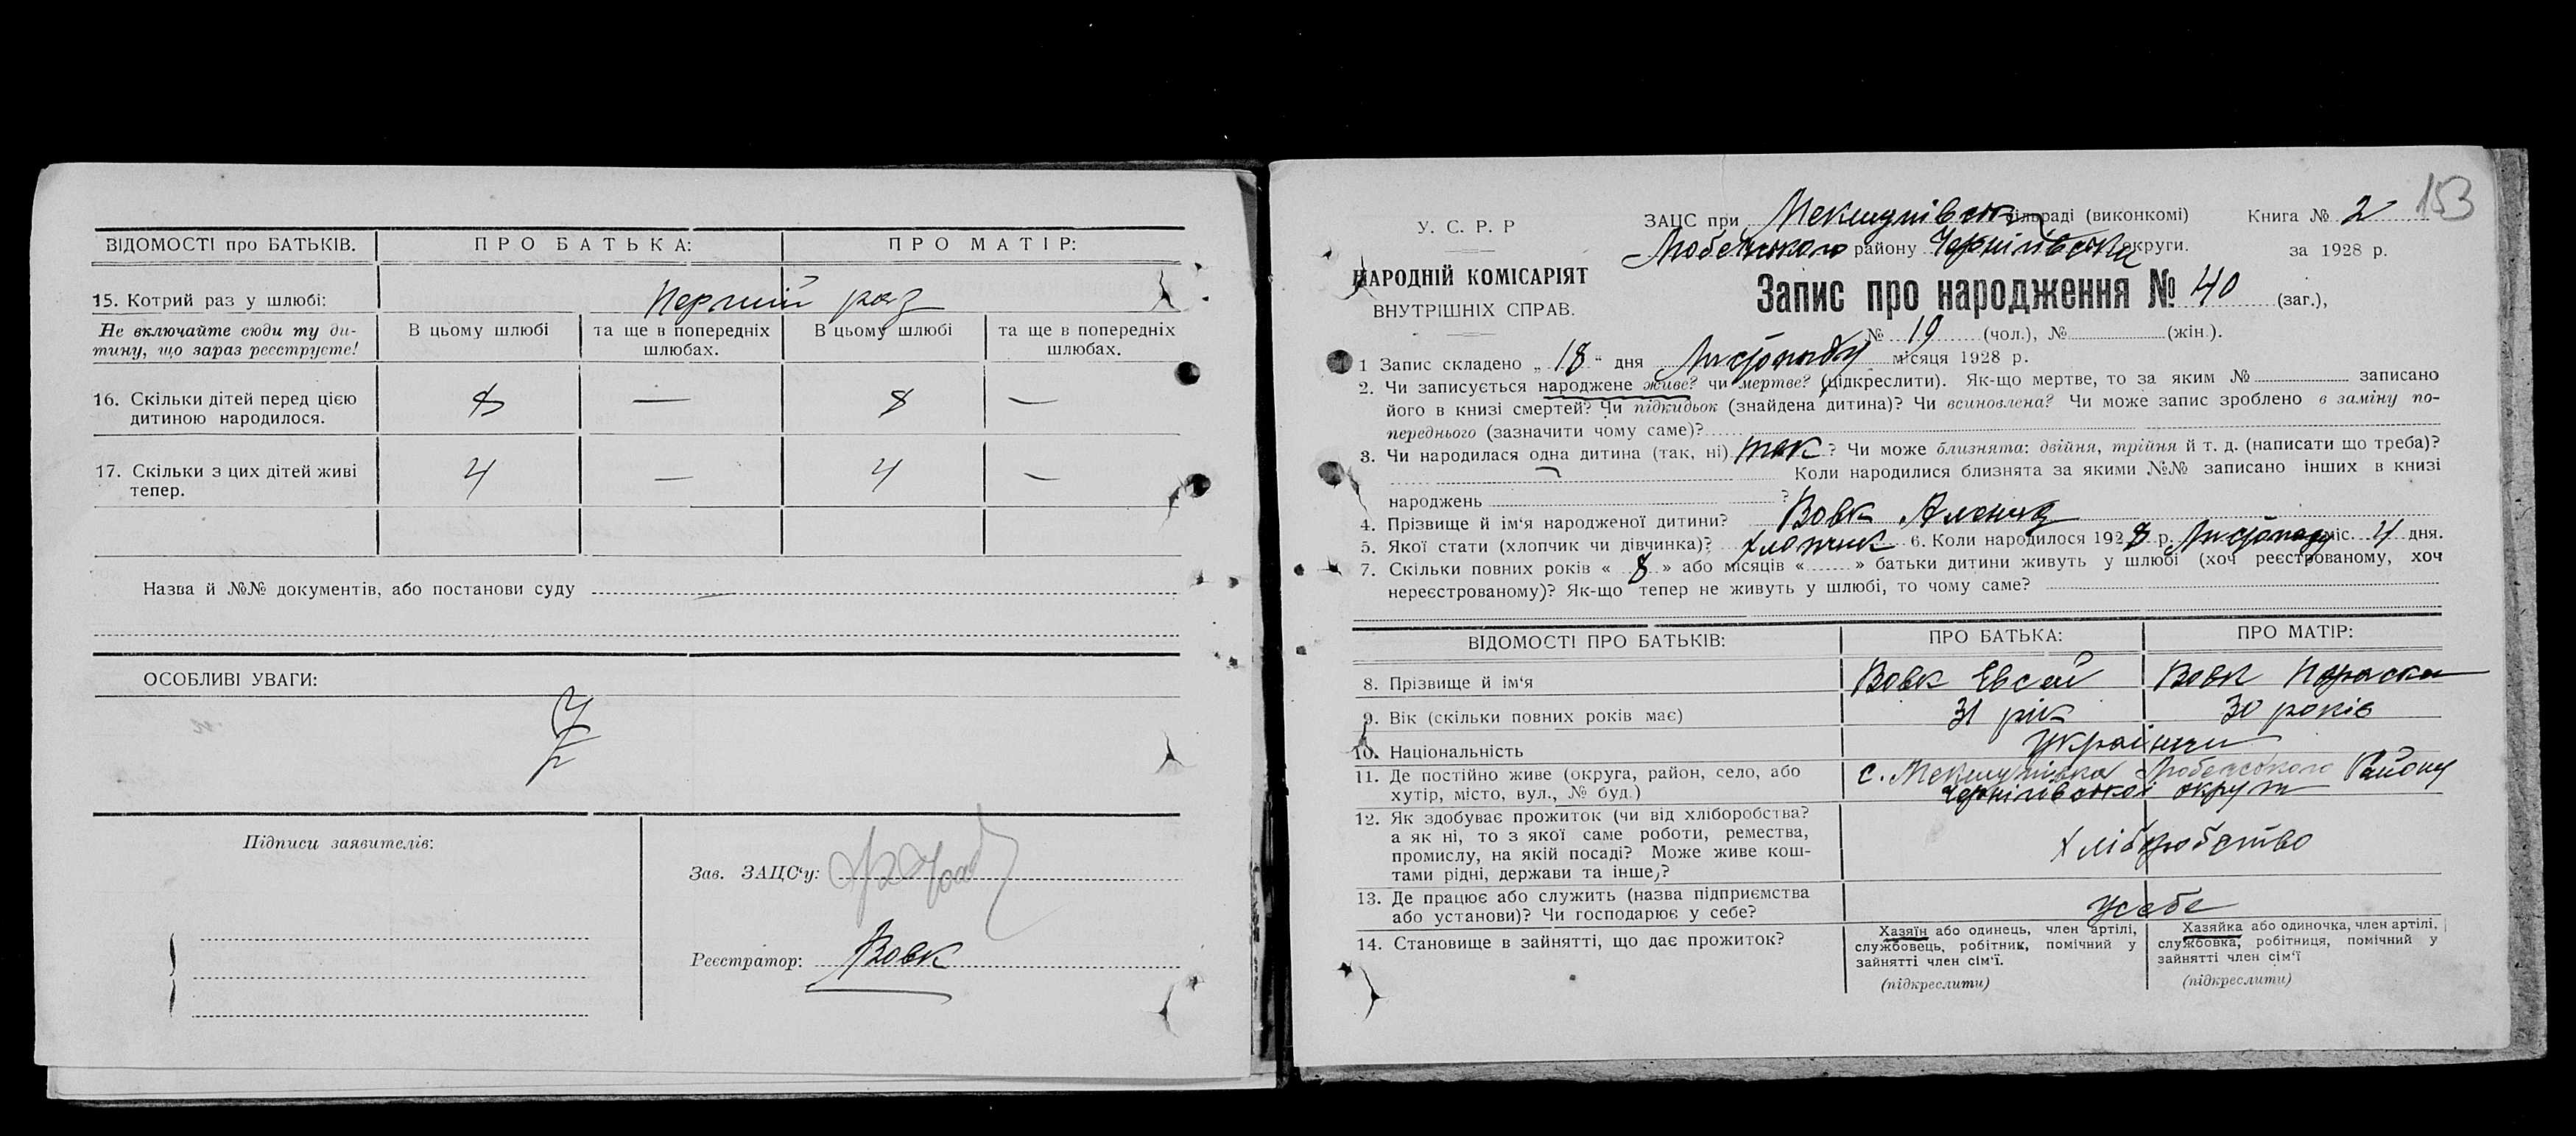 ВІДОМОСТІ про БАТЬКІВ. ПРО БАТЬКА: ПРО МАТІР:
15. Котрий раз у шлюбі: Перший раз
Не включайте сюди ту ди-
тину, що зараз реєструєте!
В цьому шлюбі
та ще в попередніх
шлюбах.
В цьому шлюбі
та ще в попередніх
шлюбах.
16. Скільки дітей перед цією
дитиною народилося.
8 — 8 —
17. Скільки з цих дітей живі
тепер.
4 — 4 —
Назва й №№ документів, або постанови суду —
ОСОБЛИВІ УВАГИ:
Підписи заявителів:
Зав. ЗАЦС'у:
Реєстратор: Вовк
153
У. С. Р. Р
НАРОДНІЙ КОМІСАРІЯТ
ВНУТРІШНІХ СПРАВ.
ЗАЦС при сільраді (виконкомі) Книга № 2
району Чернігівської округи. за 1928 р.
Запис про народження № 40 (заг.),
№ 19 (чол.), № (жін.).
1 Запис складено „ 18 “ дня Листопаду місяця 1928 р.
2. Чи записується народжене живе? чи мертве? (підкреслити). Як-що мертве, то за яким № записано
його в книзі смертей? Чи підкидьок (знайдена дитина)? Чи всиновлена? Чи може запис зроблено в заміну по-
переднього (зазначити чому саме)?
3. Чи народилася одна дитина (так, ні) так ? Чи може близнята: двійня, трійня й т. д. (написати що треба)?
Коли народилися близнята за якими №№ записано інших в книзі
народжень ?
4. Прізвище й ім'я народженої дитини? Вовк
5. Якої стати (хлопчик чи дівчинка)? хлопчик 6. Коли народилося 1928 р. Листопаду міс. 4 дня.
7. Скільки повних років « 8 » або місяців « » батьки дитини живуть у шлюбі (хоч реєстрованому, хоч
нереєстрованому)? Як-що тепер не живуть у шлюбі, то чому саме?
ВІДОМОСТІ ПРО БАТЬКІВ: ПРО БАТЬКА: ПРО МАТІР:
8. Прізвище й ім'я Вовк Евсей Вовк Параска
9. Вік (скільки повних років має) 31 рік 30 років
10. Національність Українці
11. Де постійно живе (округа, район, село, або
хутір, місто, вул., № буд.)
с. району
Чернігівської округи
12. Як здобуває прожиток (чи від хліборобства?
а як ні, то з якої саме роботи, ремества,
промислу, на якій посаді? Може живе кош-
тами рідні, держави та інше)?
Хліборобство
13. Де працює або служить (назва підприємства
або установи)? Чи господарює у себе?
У себе
14. Становище в зайнятті, що дає прожиток?
Хазяїн або одинець, член артілі,
службовець, робітник, помічний у
зайнятті член сім'ї.
(підкреслити)
Хазяйка або одиночка, член артілі,
службовка, робітниця, помічний у
зайнятті член сім'ї
(підкреслити)